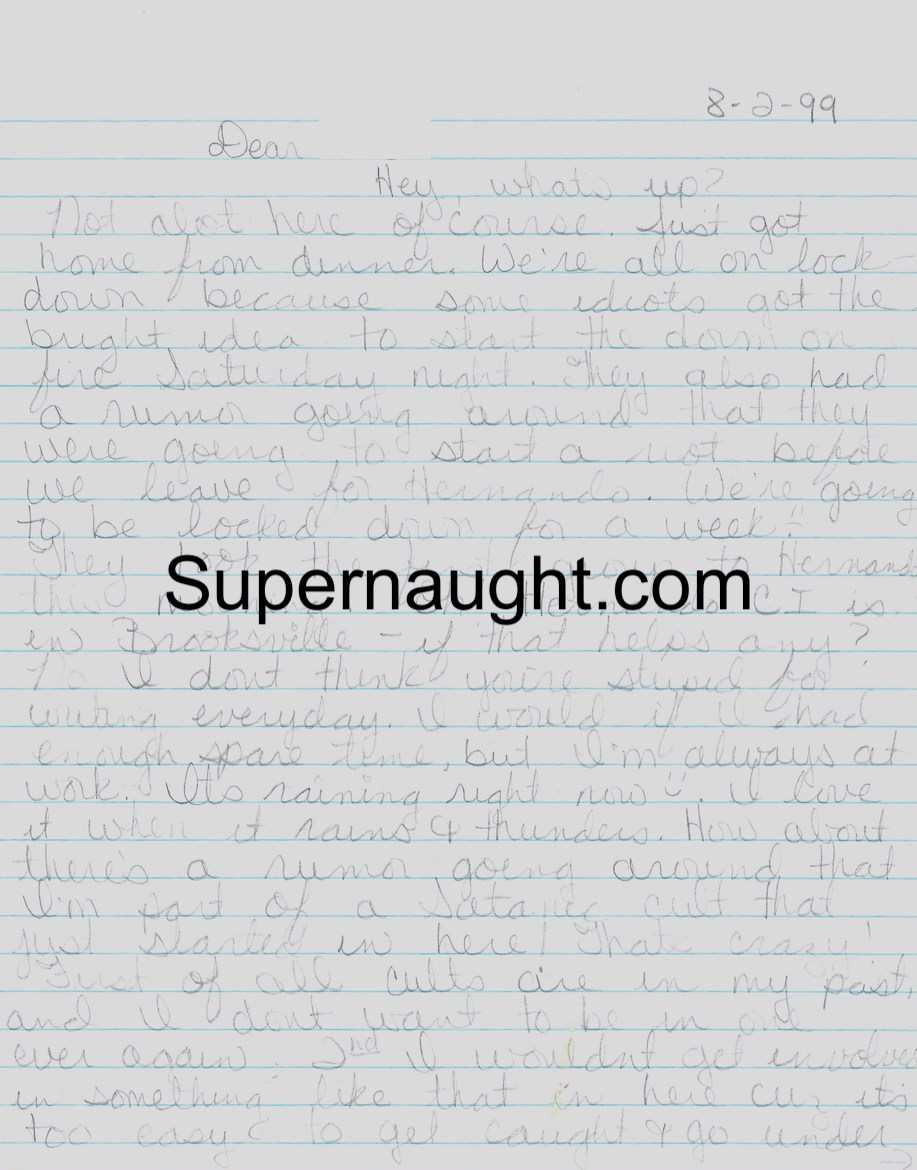 8-2-99
Dear
Hey, whats up?
Not alot here of course. Just got
home from dinner. We're all on lock-
down because some idiots got the
bright idea to start the dorm on
fire Saturday night. They also had
a rumor going around that they
were going to start a riot before
we leave for Hernando. We're going
to be locked down for a week!!
They took the to Hernando
this CI is
Supernaught.com
in Brooksville - if that helps any?
No I dont think you're stupid for
writing everyday. I would if I had
enough spare time, but I'm always at
work. Its raining right now Ü. I love
it when it rains & thunders. How about
there's a rumor going around that
I'm part of a Satanic cult that
just started in here! Thats crazy!
First of all cults are in my past,
and I dont want to be in one
ever again. 2nd I wouldnt get involved
in something like that in here cuz its
too easy to get caught & go under